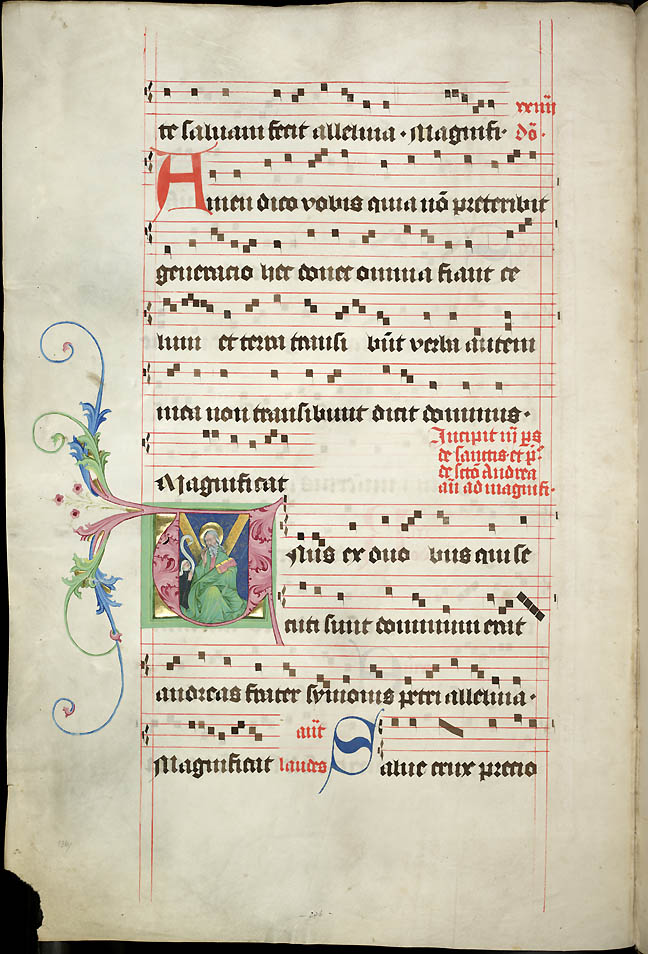 te salvam fecit alleluia · Magnifi·
xxiiij
dō·
Amen dico vobis quia nō preteribit
generacio hec donec omnia fiant ce
lum et terra transi bunt verba autem
mea non transibunt dicit dominus·
Magnificat
Incipit
de sanctis et
de scto Andrea
añ ad magnifi·
Vnus ex duo bus qui se
cuti sunt dominum erat
andreas frater symonis petri alleluia·
Magnificat
añt
laudes
Salue crux precio